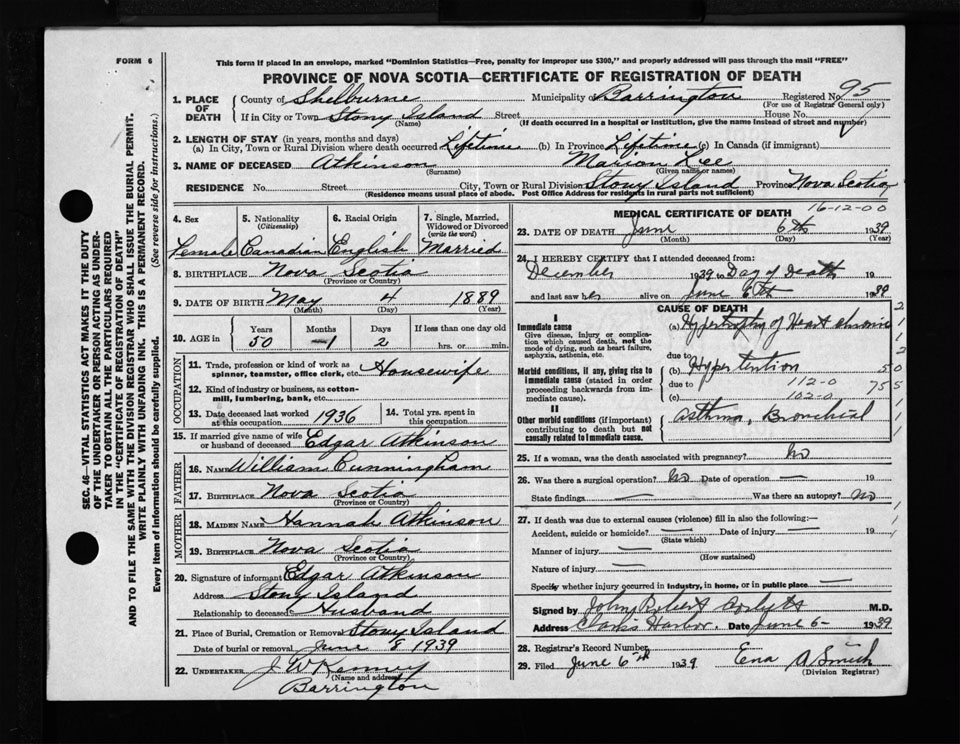 FORM 6
This form if placed in an envelope, marked "Dominion Statistics—Free, penalty for improper use $300," and properly addressed will pass through the mail "FREE"
PROVINCE OF NOVA SCOTIA—CERTIFICATE OF REGISTRATION OF DEATH
1. PLACE OF DEATH County of Shelburne Municipality of Barrington Registered No. 95
(For use of Registrar General only)
If in City or Town Stony Island Street House No.
(Name) (If death occurred in a hospital or institution, give the name instead of street and number)
2. LENGTH OF STAY (in years, months and days)
(a) In City, Town or Rural Division where death occurred Lifetime (b) In Province Lifetime (c) In Canada (if immigrant)
3. NAME OF DECEASED Atkinson Marion Lee
(Surname) (Given name or names)
RESIDENCE No. Street City, Town or Rural Division Stony Island Province Nova Scotia
(Residence means usual place of abode. Post Office Address for residents in rural parts not sufficient)
4. Sex 5. Nationality (Citizenship) 6. Racial Origin 7. Single, Married, Widowed or Divorced (write the word)
Female Canadian English Married
8. BIRTHPLACE Nova Scotia
(Province or Country)
9. DATE OF BIRTH May 4 1889
(Month) (Day) (Year)
10. AGE in Years Months Days If less than one day old
50 1 2 hrs. or min.
OCCUPATION
11. Trade, profession or kind of work as spinner, teamster, office clerk, etc. Housewife
12. Kind of industry or business, as cotton-mill, lumbering, bank, etc.
13. Date deceased last worked at this occupation 1936 14. Total yrs. spent in this occupation
15. If married give name of wife or husband of deceased Edgar Atkinson
FATHER
16. NAME William Cunningham
17. BIRTHPLACE Nova Scotia
(Province or Country)
MOTHER
18. MAIDEN NAME Hannah Atkinson
19. BIRTHPLACE Nova Scotia
(Province or Country)
20. Signature of informant Edgar Atkinson
Address Stony Island
Relationship to deceased Husband
21. Place of Burial, Cremation or Removal Stony Island
Date of burial or removal June 8 1939
22. UNDERTAKER J W Kenney
(Name and address)
Barrington
MEDICAL CERTIFICATE OF DEATH 16-12-00
23. DATE OF DEATH June 6th 1939
(Month) (Day)
24. I HEREBY CERTIFY that I attended deceased from:
December 1939 to Day of Death 19
and last saw her alive on June 6th 1939
CAUSE OF DEATH
I
Immediate cause (a) Hypertrophy of Heart chronic
Give disease, injury or complication which caused death, not the mode of dying, such as heart failure, asphyxia, asthenia, etc.
due to
Morbid conditions, if any, giving rise to immediate cause (stated in order proceeding backwards from immediate cause). (b) Hypertention
due to 112-0
(c) 102-0
II
Other morbid conditions (if important) contributing to death but not causally related to immediate cause. Asthma, Bronchial
25. If a woman, was the death associated with pregnancy? No
26. Was there a surgical operation? No Date of operation — 19
State findings — Was there an autopsy? No
27. If death was due to external causes (violence) fill in also the following:—
Accident, suicide or homicide? — Date of injury — 19
(State which)
Manner of injury —
(How sustained)
Nature of injury —
Specify whether injury occurred in industry, in home, or in public place —
Signed by John Robert M.D.
Address Clark's Harbor. Date June 6- 1939
28. Registrar's Record Number
29. Filed June 6th 1939 Ena A Smith
(Division Registrar)
SEC. 46—VITAL STATISTICS ACT MAKES IT THE DUTY
OF THE UNDERTAKER OR PERSON ACTING AS UNDER-
TAKER TO OBTAIN ALL THE PARTICULARS REQUIRED
IN THE "CERTIFICATE OF REGISTRATION OF DEATH"
AND TO FILE THE SAME WITH THE DIVISION REGISTRAR WHO SHALL ISSUE THE BURIAL PERMIT.
WRITE PLAINLY WITH UNFADING INK. THIS IS A PERMANENT RECORD.
Every item of information should be carefully supplied. (See reverse side for instructions.)